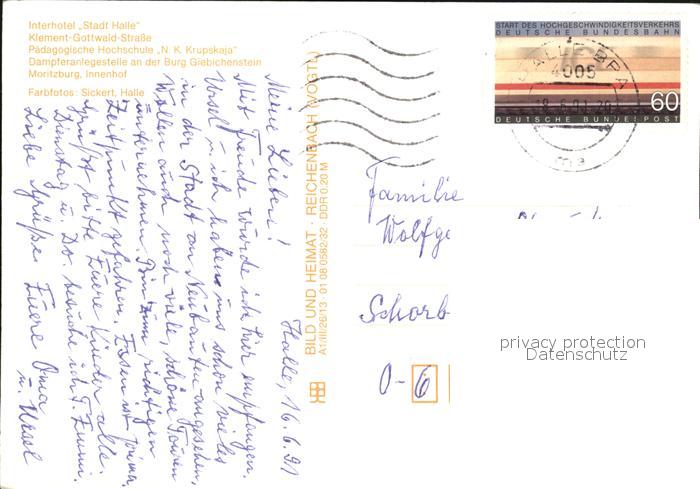 Interhotel „Stadt Halle"
Klement-Gottwald-Straße
Pädagogische Hochschule „N. K. Krupskaja"
Dampferanlegestelle an der Burg Giebichenstein
Moritzburg, Innenhof
Farbfotos: Sickert, Halle
BILD UND HEIMAT · REICHENBACH (VOGTL)
A1/III/26/13 · 01 08 0582/32 · DDR 0,20 M
Halle, 16.6.91
Meine Lieben!
Mit Freude wurde ich hier empfangen.
Ursel u. ich haben uns schon vieles
in der Stadt an Neubauten angesehen,
wollen auch noch viele, schöne Touren
unternehmen. Bin zum richtigen
Zeitpunkt gefahren. Essen ist prima.
Grüßt bitte Euere Kinder alle.
Dienstag u. Do. besuche ich T. Emmi.
Liebe Grüße Euere Oma
u. Ursel
START DES HOCHGESCHWINDIGKEITSVERKEHRS
DEUTSCHE BUNDESBAHN
60
DEUTSCHE BUNDESPOST
4005
Familie
Wolfg
Schorb
O-6
privacy protection
Datenschutz